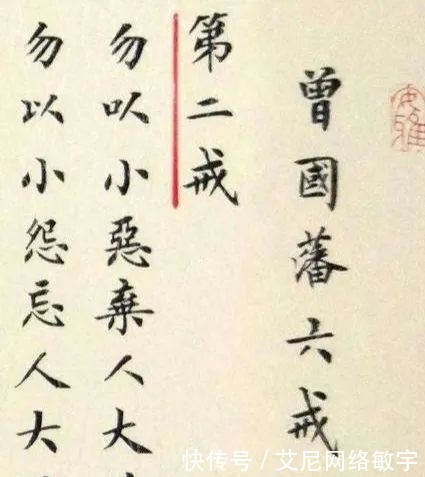 曾國藩六戒
第二戒
勿以小惡棄人大
勿以小怨忘人大
快传号／艾尼网络敏宇